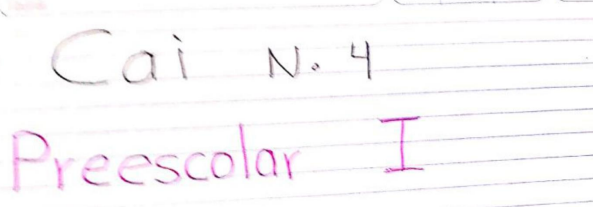 Cai N. 4
Preescolar I